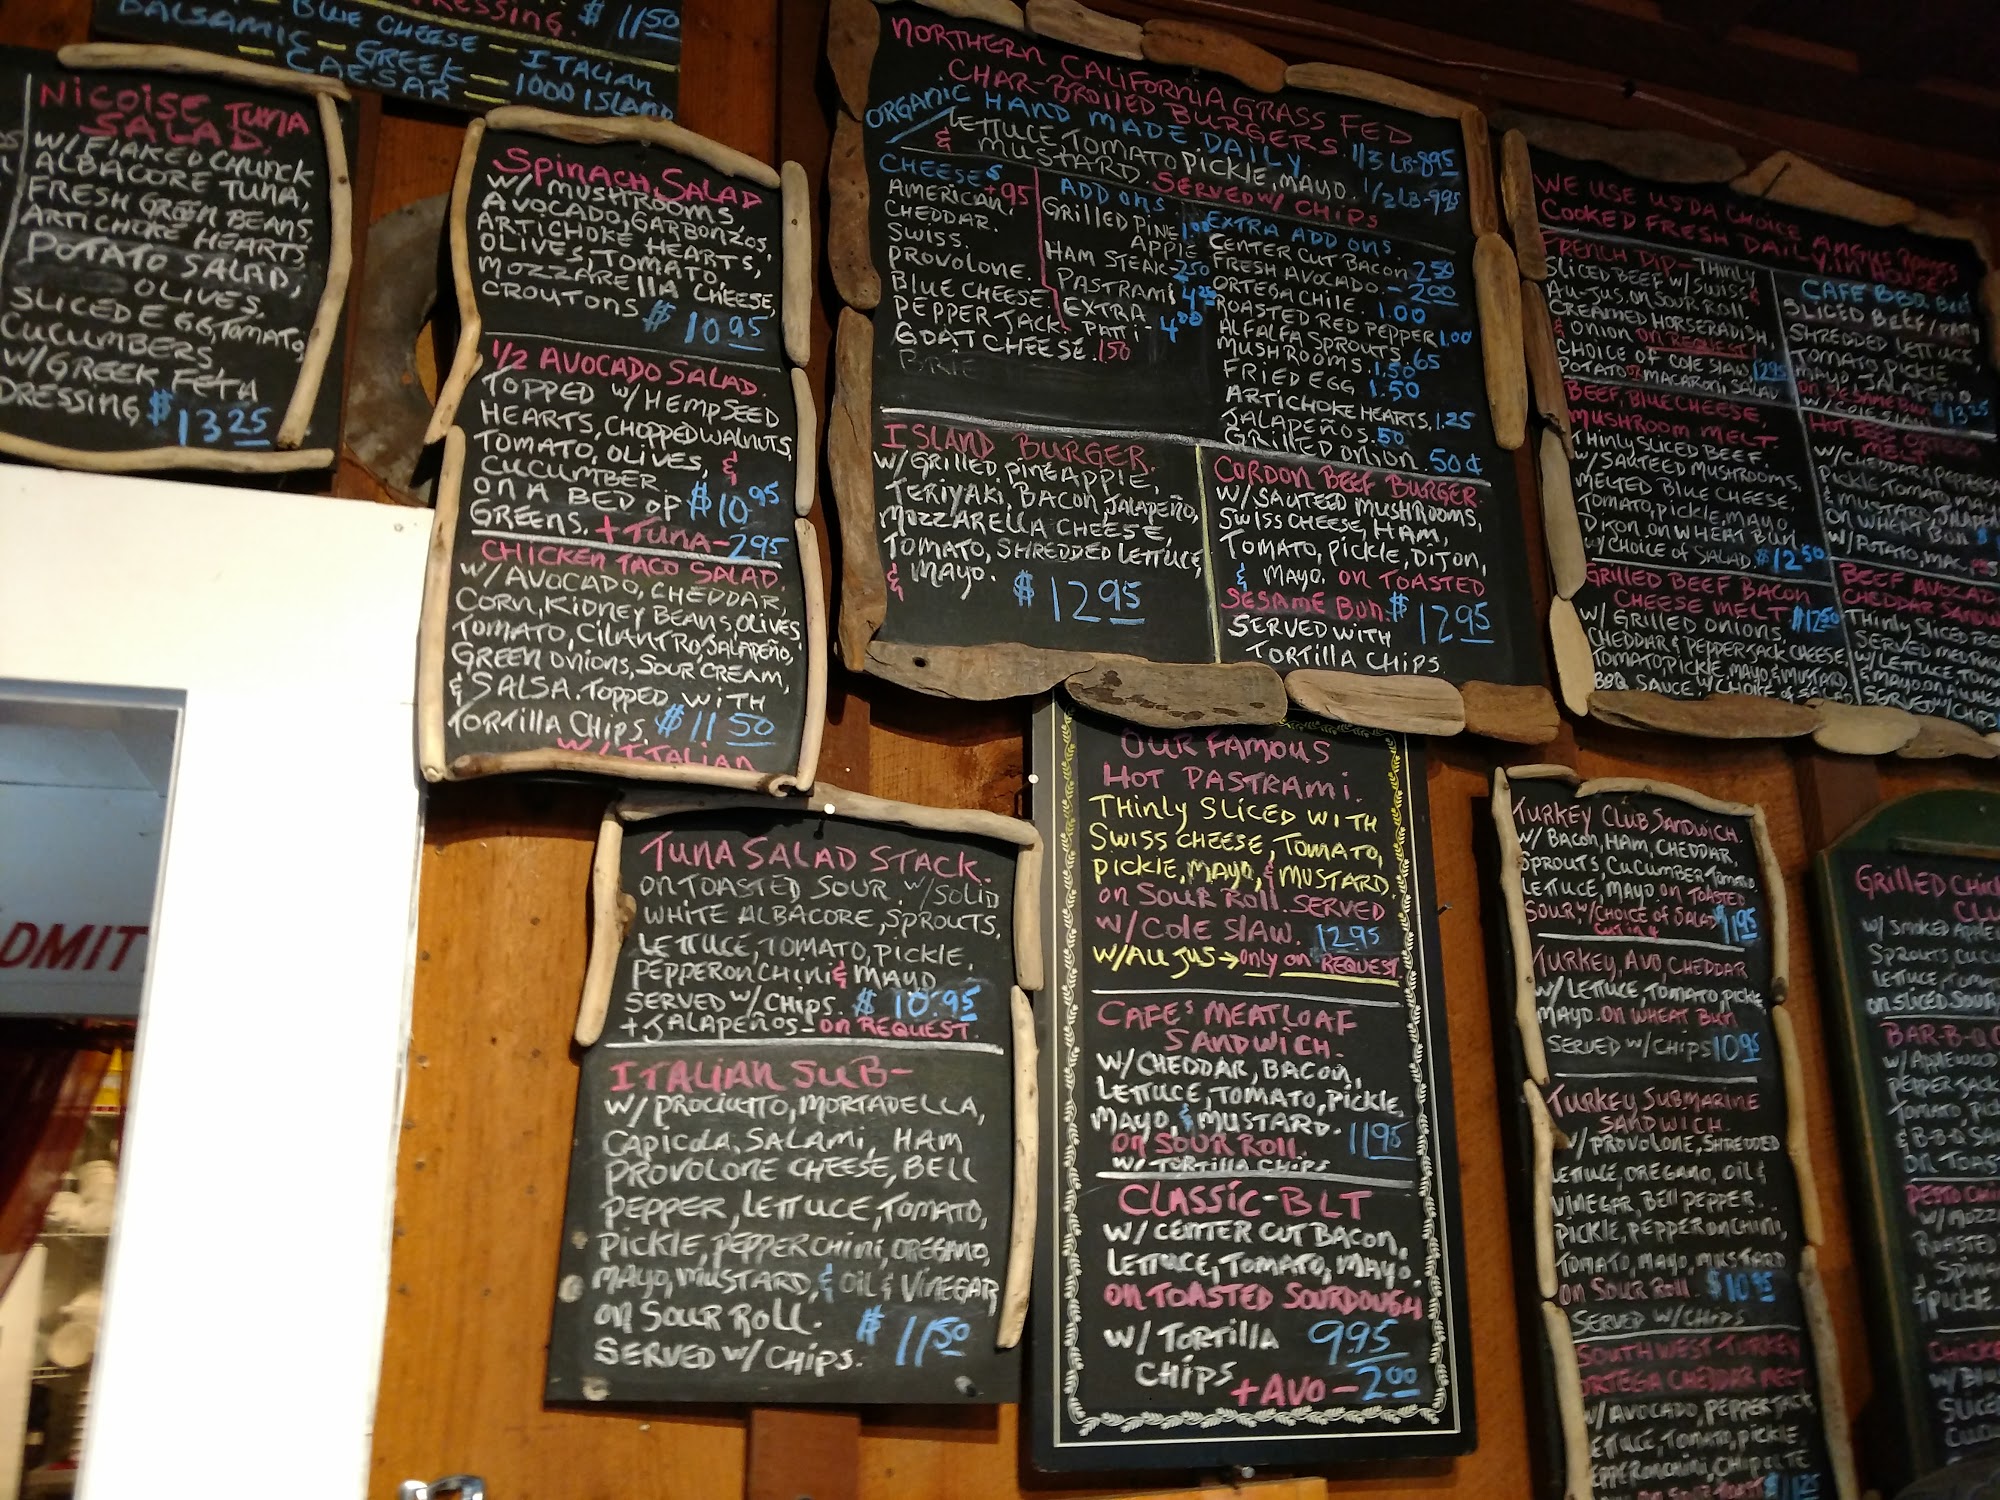 DRESSING. $ 11 50
BALSAMIC - BLUE CHEESE - ITALIAN
- GREEK -
CAESAR - 1000 ISLAND
NICOISE TUNA
SALAD.
W/FLAKED CHUNCK
ALBACORE TUNA,
FRESH GREEN BEANS
ARTICHOKE HEARTS,
POTATO SALAD,
OLIVES,
SLICED EGG, TOMATO,
CUCUMBERS
W/GREEK FETA
DRESSING $ 13 25
SPINACH SALAD
W/ MUSHROOMS,
AVOCADO, GARBONZOS,
ARTICHOKE HEARTS,
OLIVES, TOMATO,
MOZZARELLA CHEESE,
CROUTONS $ 10 95
1/2 AVOCADO SALAD.
TOPPED W/HEMPSEED
HEARTS, CHOPPED WALNUTS,
TOMATO, OLIVES, &
CUCUMBER
ON A BED OF $ 10 95
GREENS. + TUNA - 2 95
CHICKEN TACO SALAD.
W/AVOCADO, CHEDDAR,
CORN, KIDNEY BEANS, OLIVES
TOMATO, CILANTRO, JALAPEÑO,
GREEN ONIONS, SOUR CREAM,
& SALSA. TOPPED WITH
TORTILLA CHIPS. $ 11 50
W/ ITALIAN
NORTHERN CALIFORNIA GRASS FED
CHAR-BROILED BURGERS.
ORGANIC HAND MADE DAILY. 1/3 LB-8 95
LETTUCE, TOMATO, PICKLE, MAYO. 1/2 LB-9 95
& MUSTARD. SERVED W/ CHIPS
CHEESES
AMERICAN. +95
CHEDDAR.
SWISS.
PROVOLONE.
BLUE CHEESE.
PEPPER JACK.
GOAT CHEESE. 150
BRIE
ADD ONS
GRILLED PINE
APPLE 1.00
HAM STEAK - 2 50
PASTRAMI 4 25
EXTRA
PATTI - 4 00
EXTRA ADD ONS
CENTER CUT BACON 2 50
FRESH AVOCADO. - 2 00
ORTEGA CHILE. 1.00
ROASTED RED PEPPER 1.00
ALFALFA SPROUTS .65
MUSHROOMS. 1.50
FRIED EGG. 1.50
ARTICHOKE HEARTS, 1.25
JALAPEÑOS. 50
GRILLED ONION. 50¢
ISLAND BURGER.
W/GRILLED PINEAPPLE,
TERIYAKI, BACON, JALAPEÑO,
MOZZARELLA CHEESE,
TOMATO, SHREDDED LETTUCE,
& MAYO. $ 12 95
CORDON BEEF BURGER
W/SAUTEED MUSHROOMS,
SWISS CHEESE, HAM,
TOMATO, PICKLE, DIJON,
& MAYO. ON TOASTED
SESAME BUN. $ 12 95
SERVED WITH
TORTILLA CHIPS.
WE USE USDA CHOICE ANGUS
COOKED FRESH DAILY, IN HOUSE.
FRENCH DIP - THINLY
SLICED BEEF W/SWISS &
AU-JUS. ON SOUR ROLL.
CREAMED HORSERADISH,
& ONION ON REQUEST!
CHOICE OF COLE SLAW, 12 95
POTATO OR MACARONI, SALAD
BEEF, BLUE CHEESE,
MUSHROOM MELT
THINLY SLICED BEEF.
W/SAUTEED MUSHROOMS,
MELTED BLUE CHEESE,
TOMATO, PICKLE, MAYO,
DIJON. ON WHEAT BUN
W/CHOICE OF SALAD. $ 12 50
GRILLED BEEF BACON
CHEESE MELT $12 50
W/ GRILLED ONIONS,
CHEDDAR & PEPPER JACK CHEESE,
TOMATO PICKLE, MAYO, & MUSTARD,
BBQ SAUCE. W/CHOICE OF SALAD
CAFE BBQ. BEEF
SLICED BEEF
SHREDDED LETTUCE,
TOMATO PICKLE.
MAYO, JALAPEÑO
ON SESAME BUN $ 13 25
W/ COLE SLAW
HOT BEEF
MELT
W/CHEDDAR & PEPPER
PICKLE, TOMATO, MAYO
& MUSTARD,
ON WHEAT BUN $
W/POTATO, MAC,
BEEF AVOCADO
CHEDDAR SANDW
THINLY SLICED B
SERVED MED RARE
W/LETTUCE, TOMA
& MAYO. ON
SERVED W/CHIPS
TUNA SALAD STACK.
ON TOASTED SOUR. W/SOLID
WHITE ALBACORE, SPROUTS,
LETTUCE, TOMATO, PICKLE,
PEPPERONCHINI & MAYO
SERVED W/CHIPS. $ 10.95
+ JALAPEÑOS - ON REQUEST.
ITALIAN SUB-
W/ PROCIUTTO, MORTADELLA,
CAPICOLA, SALAMI, HAM
PROVOLONE CHEESE, BELL
PEPPER, LETTUCE, TOMATO,
PICKLE, PEPPERCHINI, OREGANO,
MAYO, MUSTARD, & OIL & VINEGAR
ON SOUR ROLL.
SERVED W/CHIPS. $ 11 50
OUR FAMOUS
HOT PASTRAMI.
THINLY SLICED WITH
SWISS CHEESE, TOMATO,
PICKLE, MAYO, & MUSTARD
ON SOUR ROLL. SERVED
W/COLE SLAW. 12 95
W/AU JUS → ONLY ON REQUEST.
CAFE'S MEATLOAF
SANDWICH.
W/CHEDDAR, BACON,
LETTUCE, TOMATO, PICKLE,
MAYO, & MUSTARD.
ON SOUR ROLL. 11 95
W/ TORTILLA CHIPS
CLASSIC-BLT
W/CENTER CUT BACON,
LETTUCE, TOMATO, MAYO.
ON TOASTED SOURDOUGH
W/ TORTILLA 9 95
CHIPS
+ AVO - 2 00
TURKEY CLUB SANDWICH.
W/ BACON, HAM, CHEDDAR,
SPROUTS, CUCUMBER TOMATO,
LETTUCE, MAYO ON TOASTED
SOUR W/CHOICE OF SALAD $ 11 95
CUT IN 4
TURKEY, AVO, CHEDDAR
W/ LETTUCE, TOMATO, PICKLE
MAYO. ON WHEAT BUN
SERVED W/CHIPS 10 95
TURKEY SUBMARINE
SANDWICH.
W/ PROVOLONE, SHREDDED
LETTUCE, OREGANO, OIL &
VINEGAR, BELL PEPPER.
PICKLE, PEPPERONCHINI,
TOMATO, MAYO, MUSTARD
ON SOUR ROLL. $ 10 95
SERVED W/CHIPS
SOUTHWEST TURKEY
ORTEGA CHEDDAR MELT
W/AVOCADO, PEPPER JACK
LETTUCE, TOMATO, PICKLE
PEPPERONCHINI, CHIPOTLE
$ 11 25
GRILLED CHIC
CLU
W/ SMOKED APPLE
SPROUTS, CUCU
LETTUCE, TOMA
ON SLICED SOUR
BAR-B-Q C
W/ APPLEWOOD
PEPPER JACK
TOMATO, PIC
& B-B-Q SA
ON TOAS
PESTO CHI
W/ MOZZ
ROASTED
SPINA
& PICKLE
CHICK
W/ BLU
SLICE
CUCU
DMIT